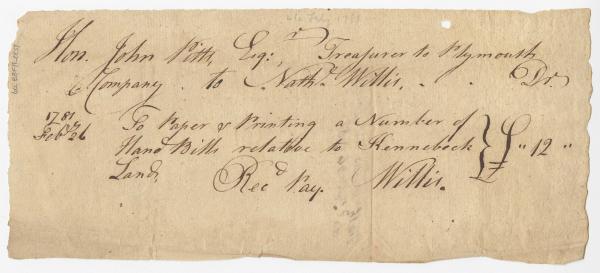 Hon. John Pitts, Esq:, Treasurer to Plymouth
Company to Nath.l Willis, Dr.
1781
Feb.y 26
To Paper & Printing a Number of
Hand Bills relative to Kennebeck
Land,
£ " 12 "
Rec.d Pay. Willis.